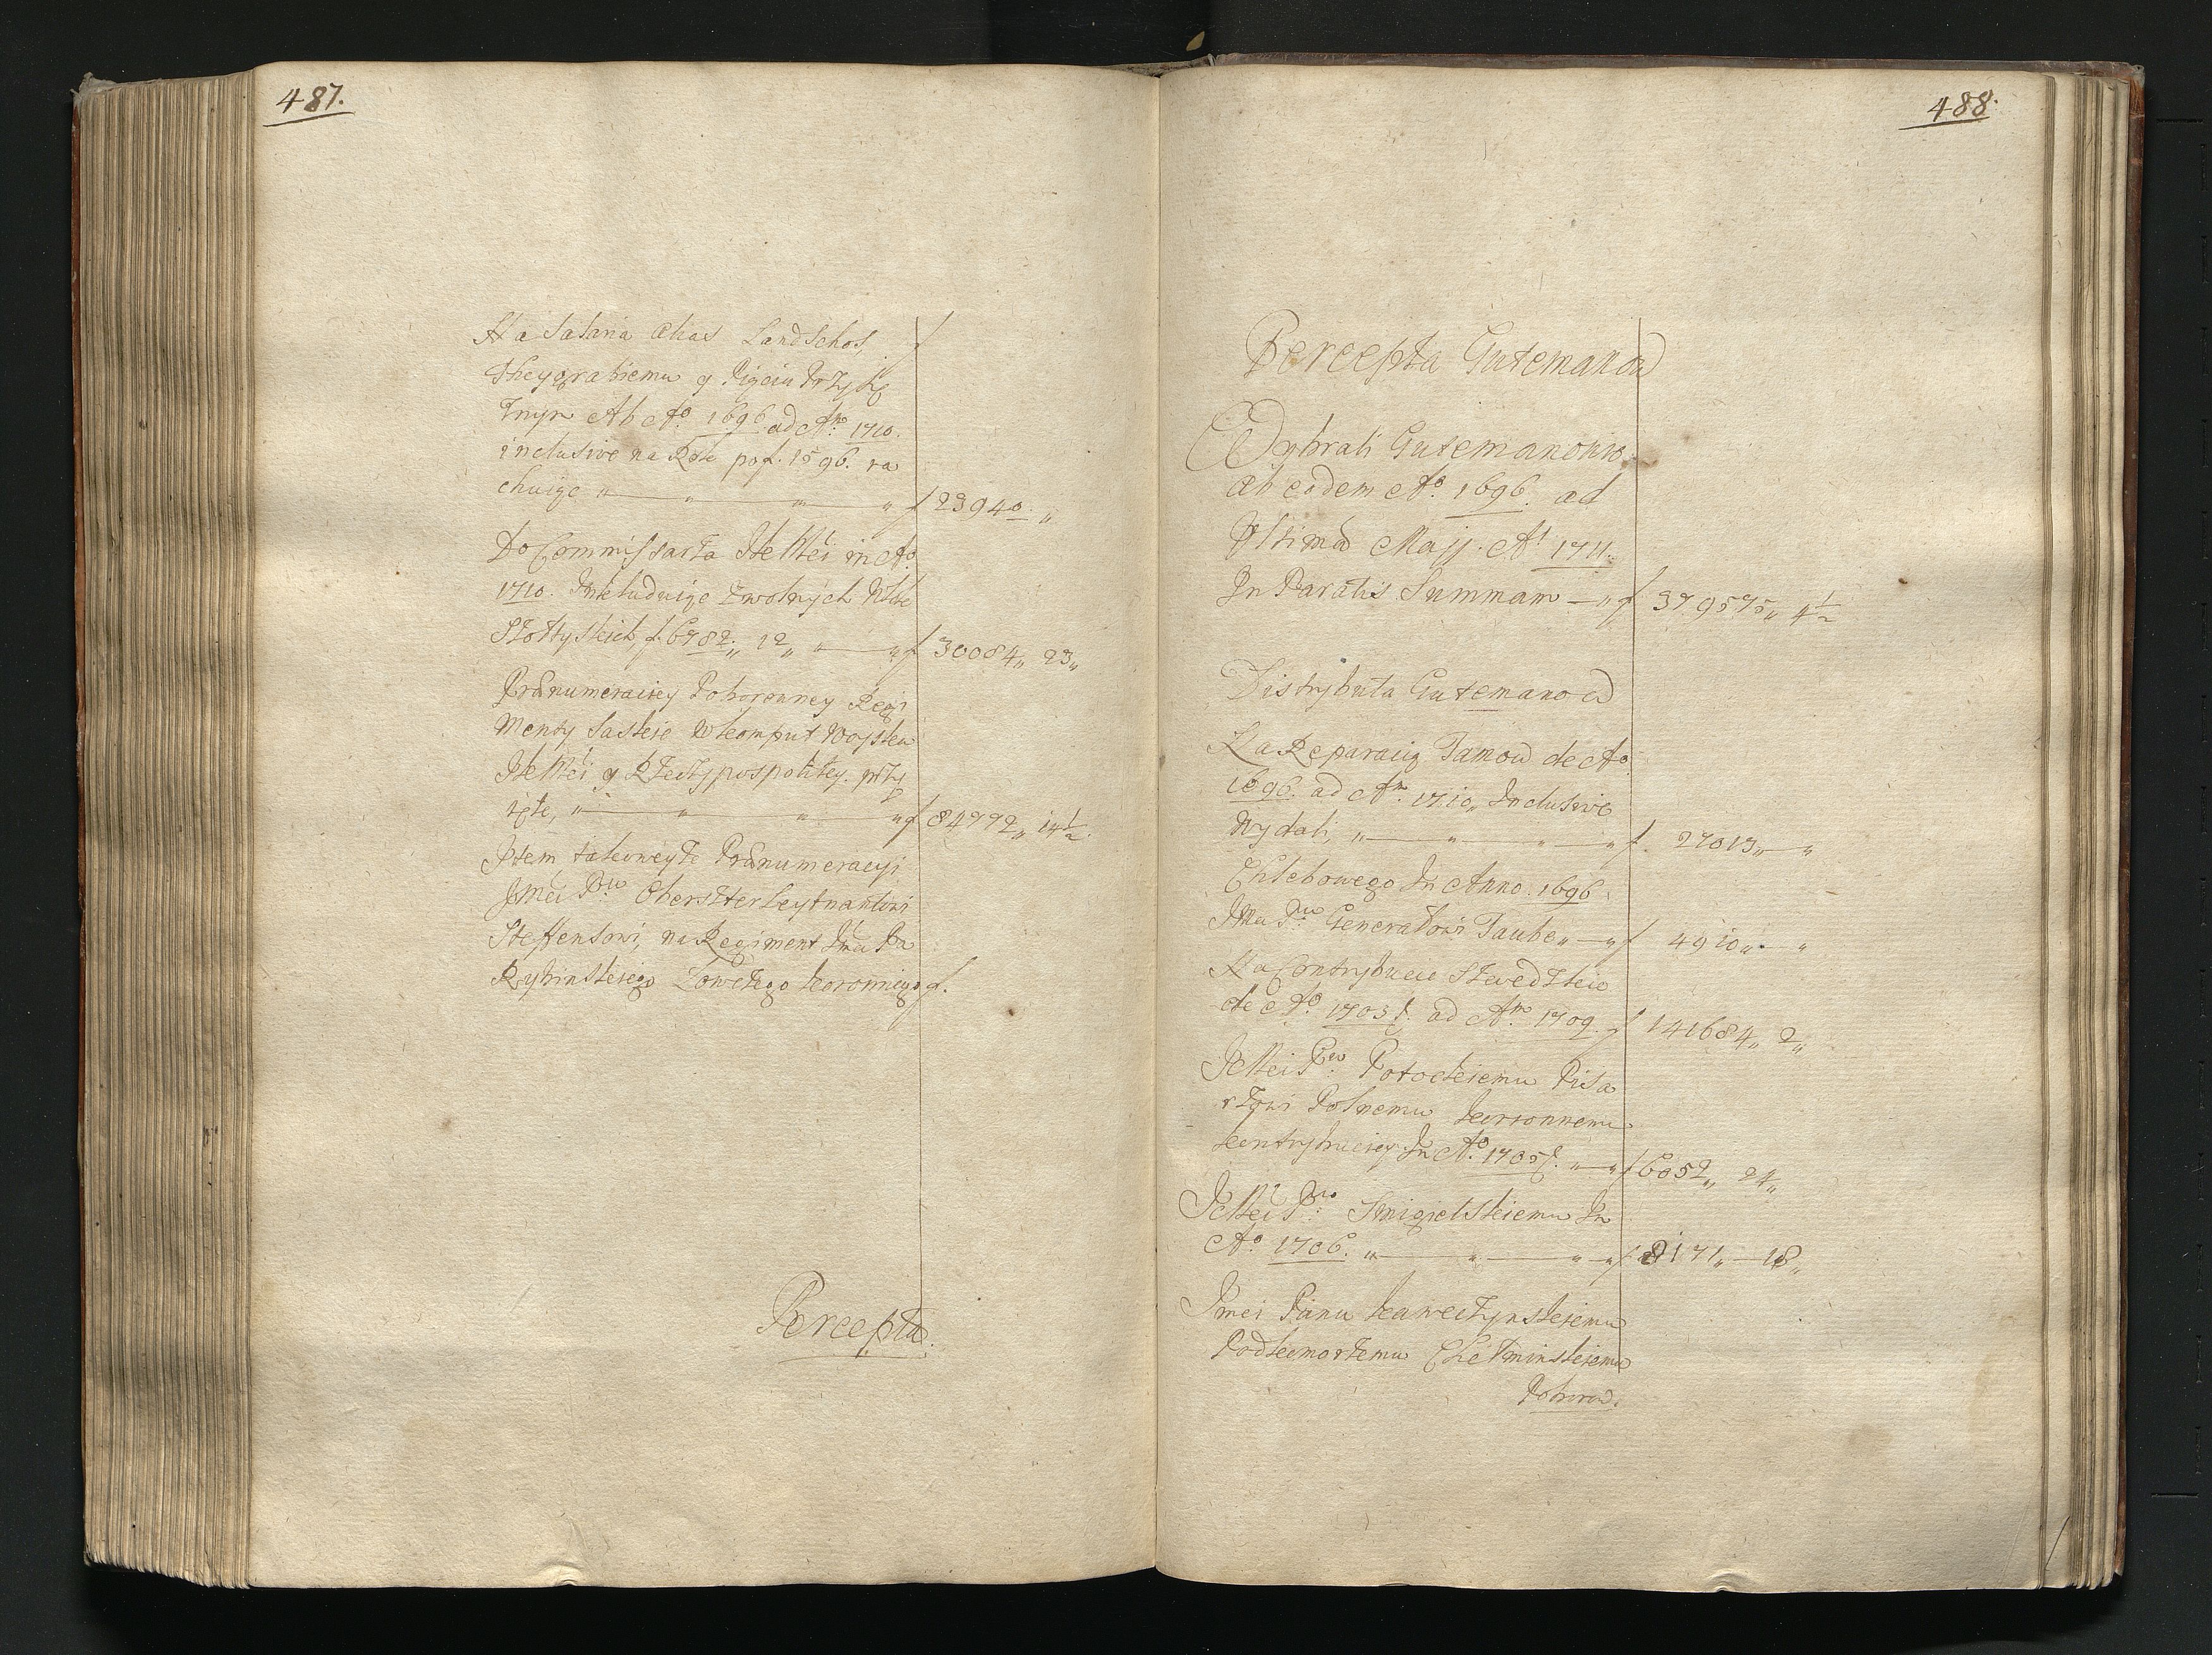 487.
Na Salaria alias Landschos,
Theygrabiemu y Pięciu Przysię
żnym Ab Aō. 1696. ad Anm. 1710.
inclusive na Rok pof. 1596. ra
chuiąc „ — „ — „ — „ f 23940. „
Do Commissarza JeMći in Aō.
1710. Inkluduiąc zwolnych Włok
Szołtyskich, f. 6782„ 12„ „ — „ f 30084„ 23„
Prænumeracyey Poboronney Regi
menty Saskie w komput Woyska
JkMći y Rzeczypospolitey. przy
ięte, „ — „ — „ — „ f 84772„ 14½.
Item takoweyże Prænumeracyi
JMći Pu. Oberszterleytnantowi
Steffensowi, na Regiment Jmći Pa
Rybinskiego Łowczego koronnego f.
Percepta.
488.
Percepta Gutemanow
Wybrali Gutemanowie
ab eodem Aō. 1696. ad
Ultimã Majj. Aī 1711.
In Paratis Summam — „ f 379575„ 4½
Distrybuta Gutemanow
Na Reparacią Tamow de Aō.
1696. ad Anm. 1710„ Inclusive
Wydali, „ — „ — „ — „ f. 27013„ — „
Chlebowego In Anno. 1696
JMći Pu. Generałowi Taube„ — „ f 4910„ — „
Na Contrybucie Szwedzkie
de Aō. 1703f. ad Anm. 1709. f 141684„ 2„
JeMći Pu. Potockiemu Pisa
rzowi Polnemu koronnemu
kontrybuciey In Aō. 1705f. „ — „ f 6052„ 24„
JeMći Pu. Smigielskiemu In
Aō. 1706. „ — „ — „ — „ f 8171„ — 18„
Jmći Panu kaweczynskiemu
Podkomorzemu Chełminskiemu
Poborow.